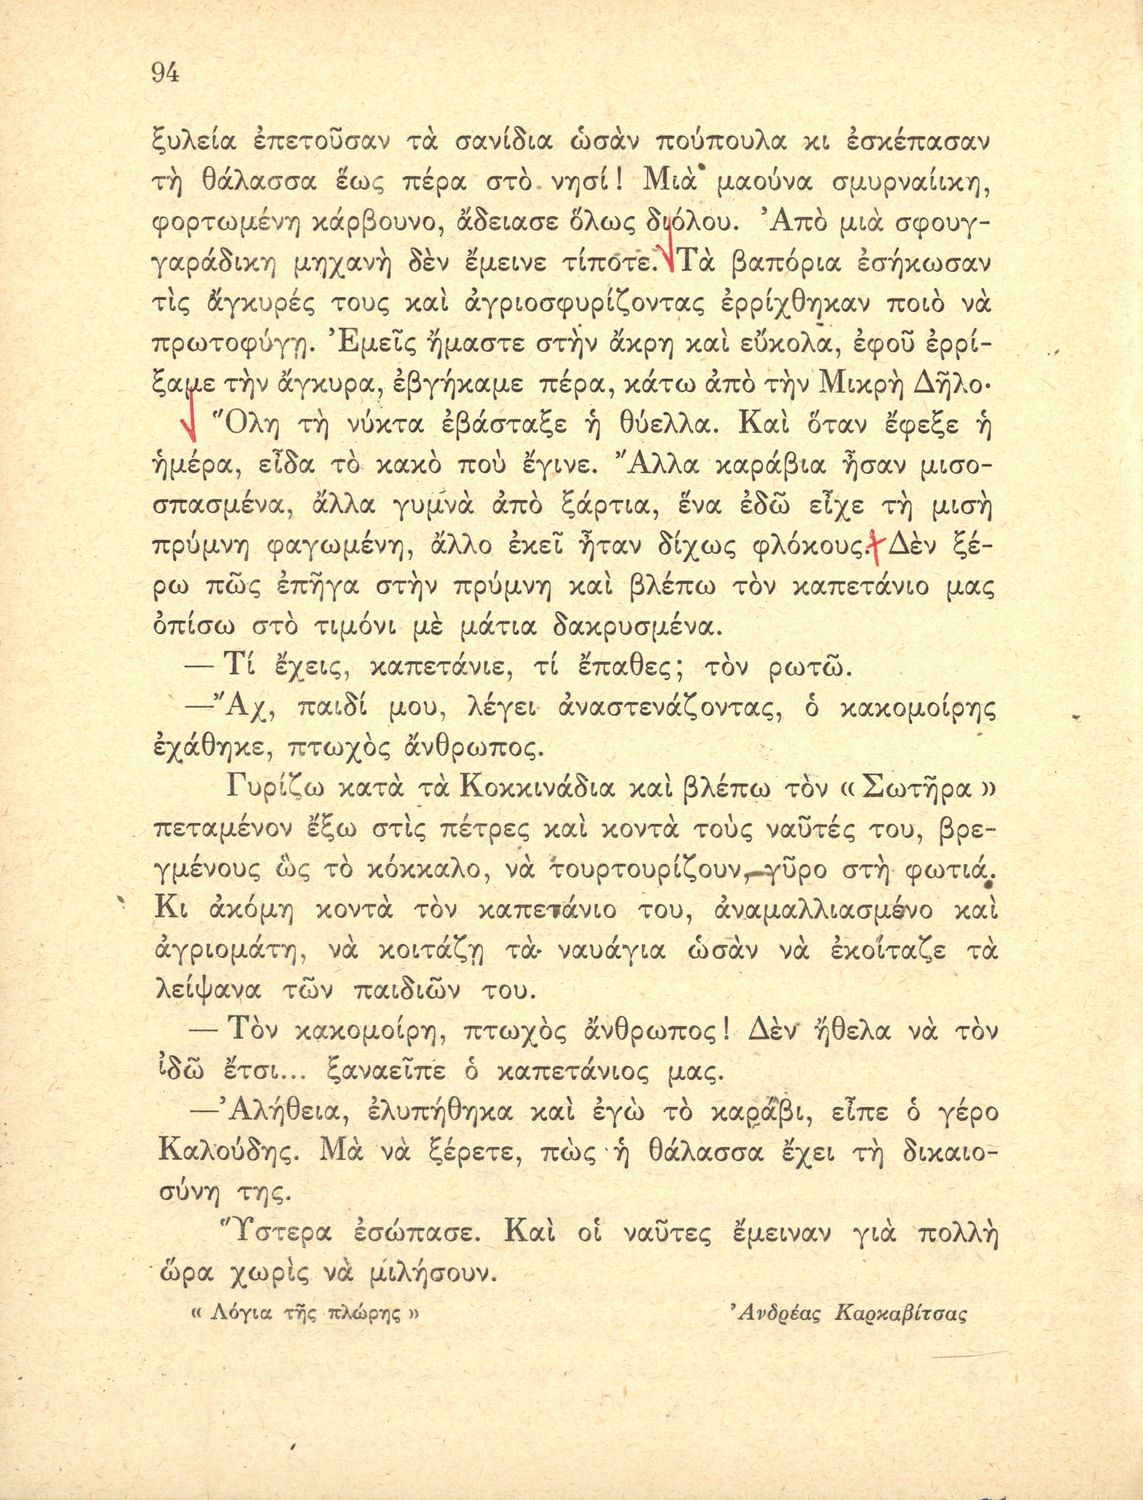 94
ξυλεία ἐπετοῦσαν τὰ σανίδια ὡσὰν πούπουλα κι ἐσκέπασαν
τὴ θάλασσα ἕως πέρα στὸ νησί! Μιὰ μαούνα σμυρναίικη,
φορτωμένη κάρβουνο, ἄδειασε ὅλως διόλου. Ἀπὸ μιὰ σφουγ-
γαράδικη μηχανὴ δὲν ἔμεινε τίποτε. Τὰ βαπόρια ἐσήκωσαν
τὶς ἄγκυρές τους καὶ ἀγριοσφυρίζοντας ἐρρίχθηκαν ποιὸ νὰ
πρωτοφύγῃ. Ἐμεῖς ἤμαστε στὴν ἄκρη καὶ εὔκολα, ἐφοῦ ἐρρί-
ξαμε τὴν ἄγκυρα, ἐβγήκαμε πέρα, κάτω ἀπὸ τὴν Μικρὴ Δῆλο·
Ὅλη τὴ νύκτα ἐβάσταξε ἡ θύελλα. Καὶ ὅταν ἔφεξε ἡ
ἡμέρα, εἶδα τὸ κακὸ ποὺ ἔγινε. Ἄλλα καράβια ἦσαν μισο-
σπασμένα, ἄλλα γυμνὰ ἀπὸ ξάρτια, ἕνα ἐδῶ εἶχε τὴ μισὴ
πρύμνη φαγωμένη, ἄλλο ἐκεῖ ἦταν δίχως φλόκους. Δὲν ξέ-
ρω πῶς ἐπῆγα στὴν πρύμνη καὶ βλέπω τὸν καπετάνιο μας
ὀπίσω στὸ τιμόνι μὲ μάτια δακρυσμένα.
— Τί ἔχεις, καπετάνιε, τί ἔπαθες; τὸν ρωτῶ.
—Ἄχ, παιδί μου, λέγει ἀναστενάζοντας, ὁ κακομοίρης
ἐχάθηκε, πτωχὸς ἄνθρωπος.
Γυρίζω κατὰ τὰ Κοκκινάδια καὶ βλέπω τὸν « Σωτῆρα »
πεταμένον ἔξω στὶς πέτρες καὶ κοντὰ τοὺς ναῦτές του, βρε-
γμένους ὣς τὸ κόκκαλο, νὰ τουρτουρίζουν, γῦρο στὴ φωτιά.
Κι ἀκόμη κοντὰ τὸν καπετάνιο του, ἀναμαλλιασμένο καὶ
ἀγριομάτη, νὰ κοιτάζῃ τὰ ναυάγια ὡσὰν νὰ ἐκοίταζε τὰ
λείψανα τῶν παιδιῶν του.
— Τὸν κακομοίρη, πτωχὸς ἄνθρωπος! Δὲν ἤθελα νὰ τὸν
ἰδῶ ἔτσι... ξαναεῖπε ὁ καπετάνιος μας.
—Ἀλήθεια, ἐλυπήθηκα καὶ ἐγὼ τὸ καράβι, εἶπε ὁ γέρο
Καλούδης. Μὰ νὰ ξέρετε, πὼς ἡ θάλασσα ἔχει τὴ δικαιο-
σύνη της.
Ὕστερα ἐσώπασε. Καὶ οἱ ναῦτες ἔμειναν γιὰ πολλὴ
ὥρα χωρὶς νὰ μιλήσουν.
« Λόγια τῆς πλώρης » Ἀνδρέας Καρκαβίτσας